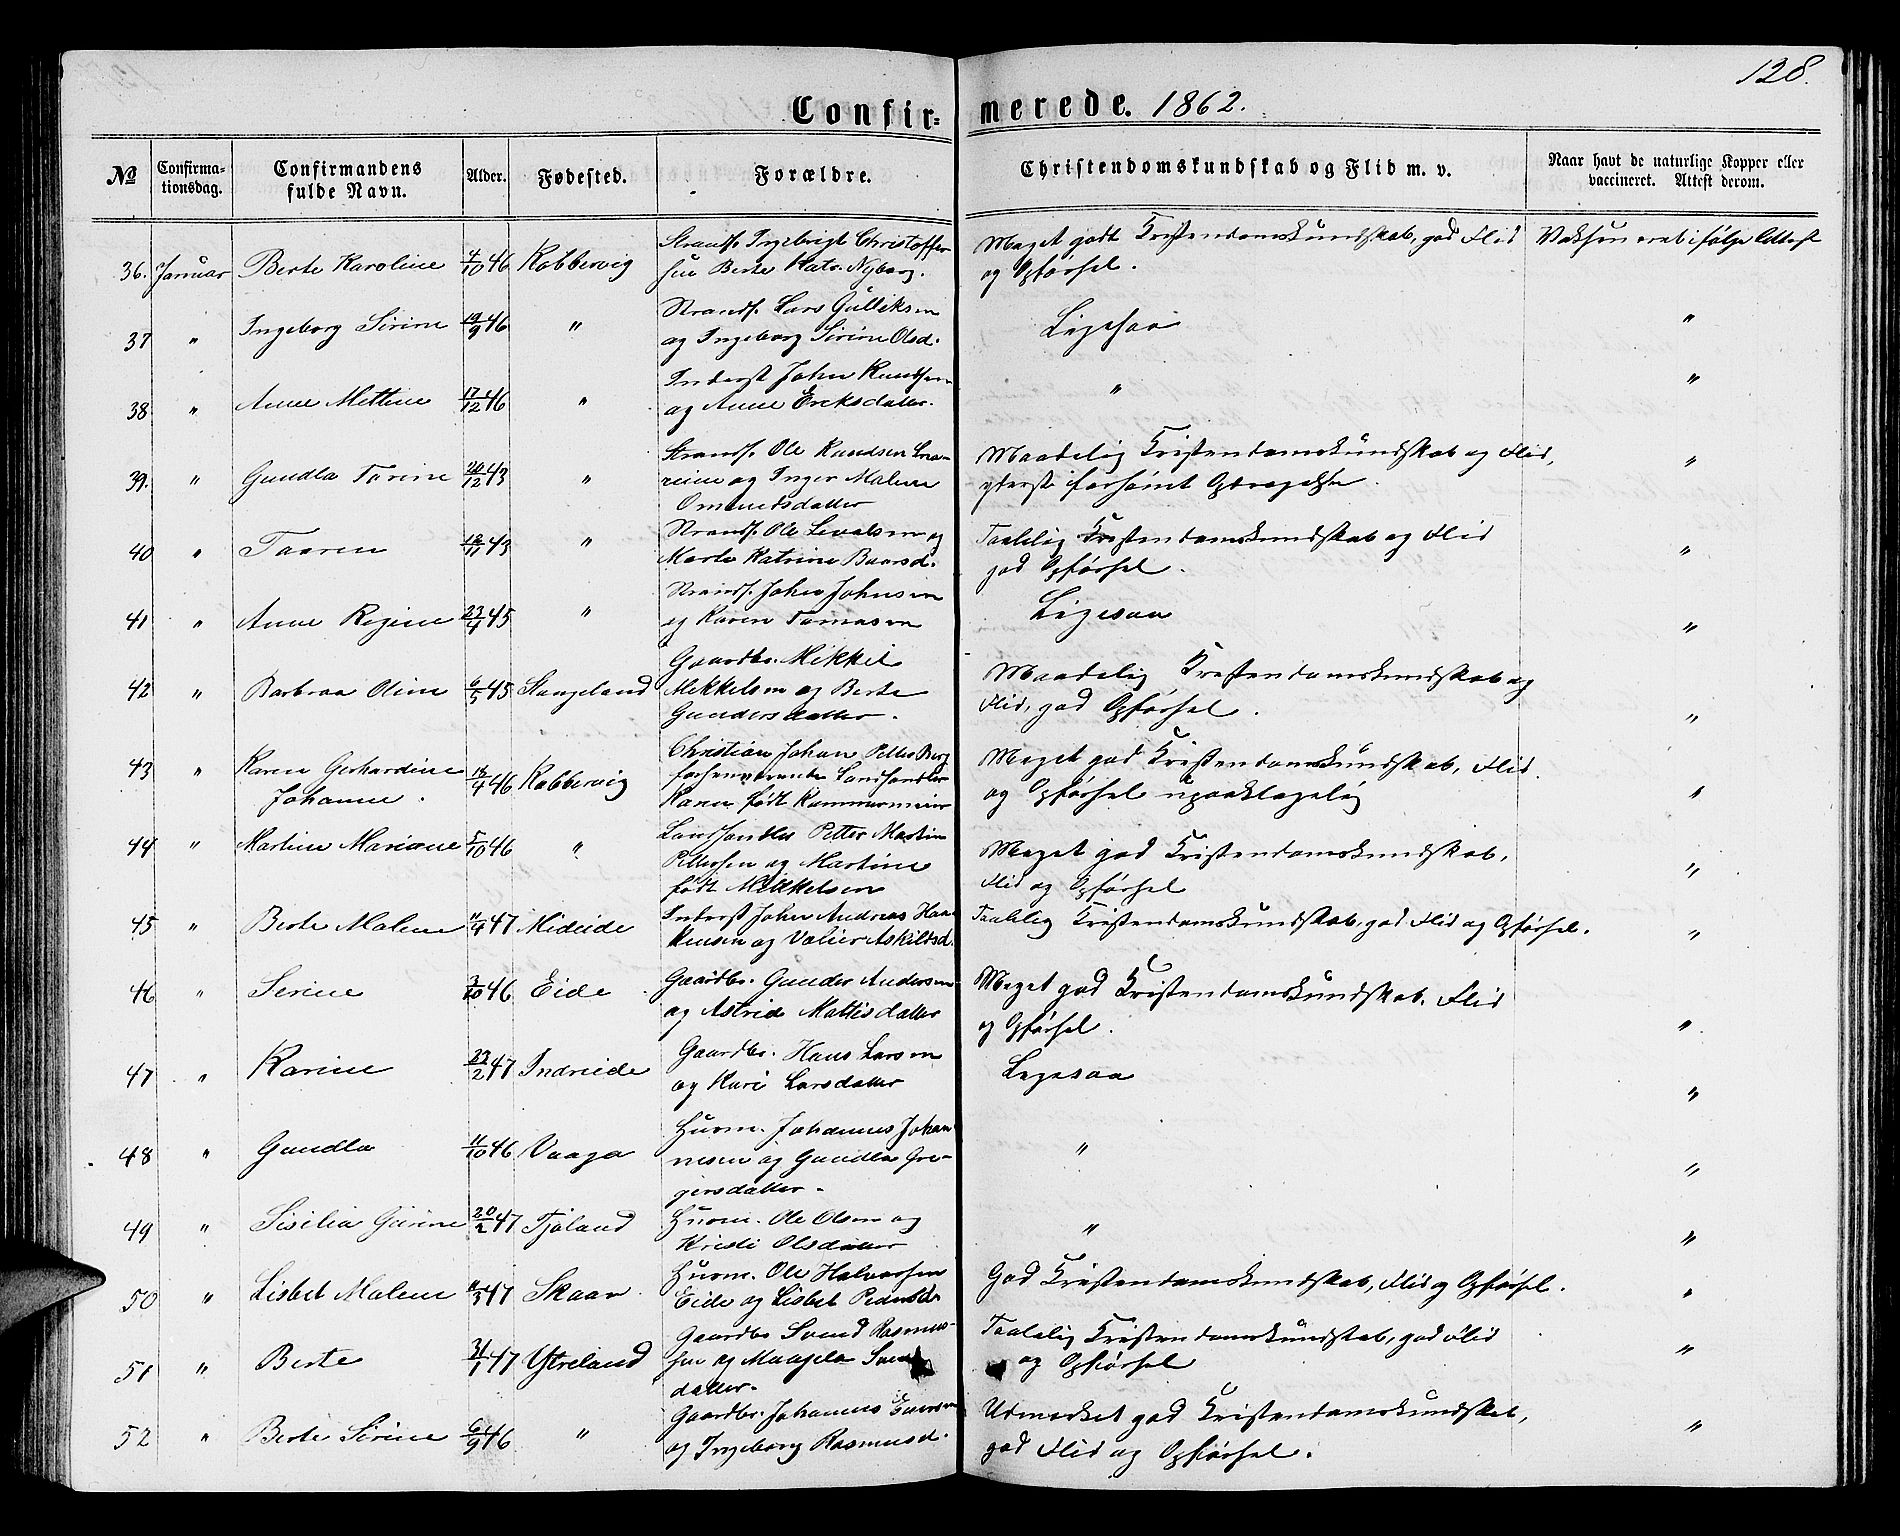 128.
Confirmerede. 1862.
№ Confirmationsdag. Confirmandens fulde Navn. Alder. Fødested. Forældre. Christendomskundskab og Flid m. v. Naar havt de naturlige Kopper eller vaccineret. Attest derom.
36. Januar Berte Karoline 4/10 46 Kobbervig Strands. Ingebrigt Christoffer- Meget godt Kristendomskundskab, god Flid Vaksineret ifølge Attest
sen Berte Katr. Nyborg. og Opførsel.
37 " Ingeborg Sirine 19/9 46 " Strands. Lars Gulliksen Ligesaa "
og Ingeborg Sirine Olsd.
38 " Anne Mettine 17/12 46 " Inderst John Knudsen " "
og Anne Eriksdatter.
39. " Gundla Torine 20/12 43 " Strands. Ole Knudsen Maadelig Kristendomskundskab og Flid, "
og Inger Malene yderst forsømt
Omundsdatter
40 " Taaren 18/11 43 " Strands. Ole og Taalelig Kristendomskundskab og Flid "
Marte Katrine Baarsd. god Opførsel.
41 " Anne Regine 23/4 45 " Strands. John Johnsen Ligesaa "
og Karen Tomasen
42 " Barbraa Oline 6/5 45 Stangeland Gaardbr. Mikkel Maadelig Kristendomskundskab og
Mikkelsen og Berte Flid, god Opførsel. "
Gundersdatter.
43 " Karen Gerhardine Johanne. 13/4 46 Kobbervig Christian Johan Petter Berg Meget god Kristendomskundskab, Flid
forhenværende Landhandler og Opførsel upaaklagelig "
Karen født Kammermeier
44 " Martine Mariane 5/10 46 " Landhandler Petter Martin Meget god Kristendomskundskab,
Pettersen og Martine Flid og Opførsel "
født Mikkelsen
45 " Berte Malene 11/4 47 Mideide Inderst John Andreas Haa- Taalelig Kristendomskundskab, god Flid og Opførsel. "
kensen og Askildsd.
46 " Serine 2/10 46 Eide Gaardbr. Gunder Andersen Meget god Kristendomskundskab, Flid
og Astrid Mattisdatter og Opførsel. "
47 " Karine 22/2 47 Indreeide Gaardbr. Hans Larsen Ligesaa "
og Kari Larsdatter
48 " Gundla 11/10 46 Vaaga Huusm. Johannes Johan- " "
nesen og Gundla Gre-
gersdatter.
49 " Sisilia Gurine 20/2 47 Tjøland Huusm. Ole Olsen og " "
Kristi Olsdatter
50 " Lisbet Malene 11/3 47 Skaar Huusm. Ole Halvorsen God Kristendomskundskab, Flid og Opførsel. "
Eide og Lisbet Pedersd.
51 " Berte 31/1 47 Ytreland Gaardbr. Svend Rasmus- Taalelig Kristendomskundskab, god Flid "
sen og Maagela Svends- og Opførsel
datter.
52 " Berte Sirine 6/9 46 " Gaardbr. Johannes Einersen Udmærket god Kristendomskundskab, "
og Ingeborg Rasmusd. god Flid og Opførsel.